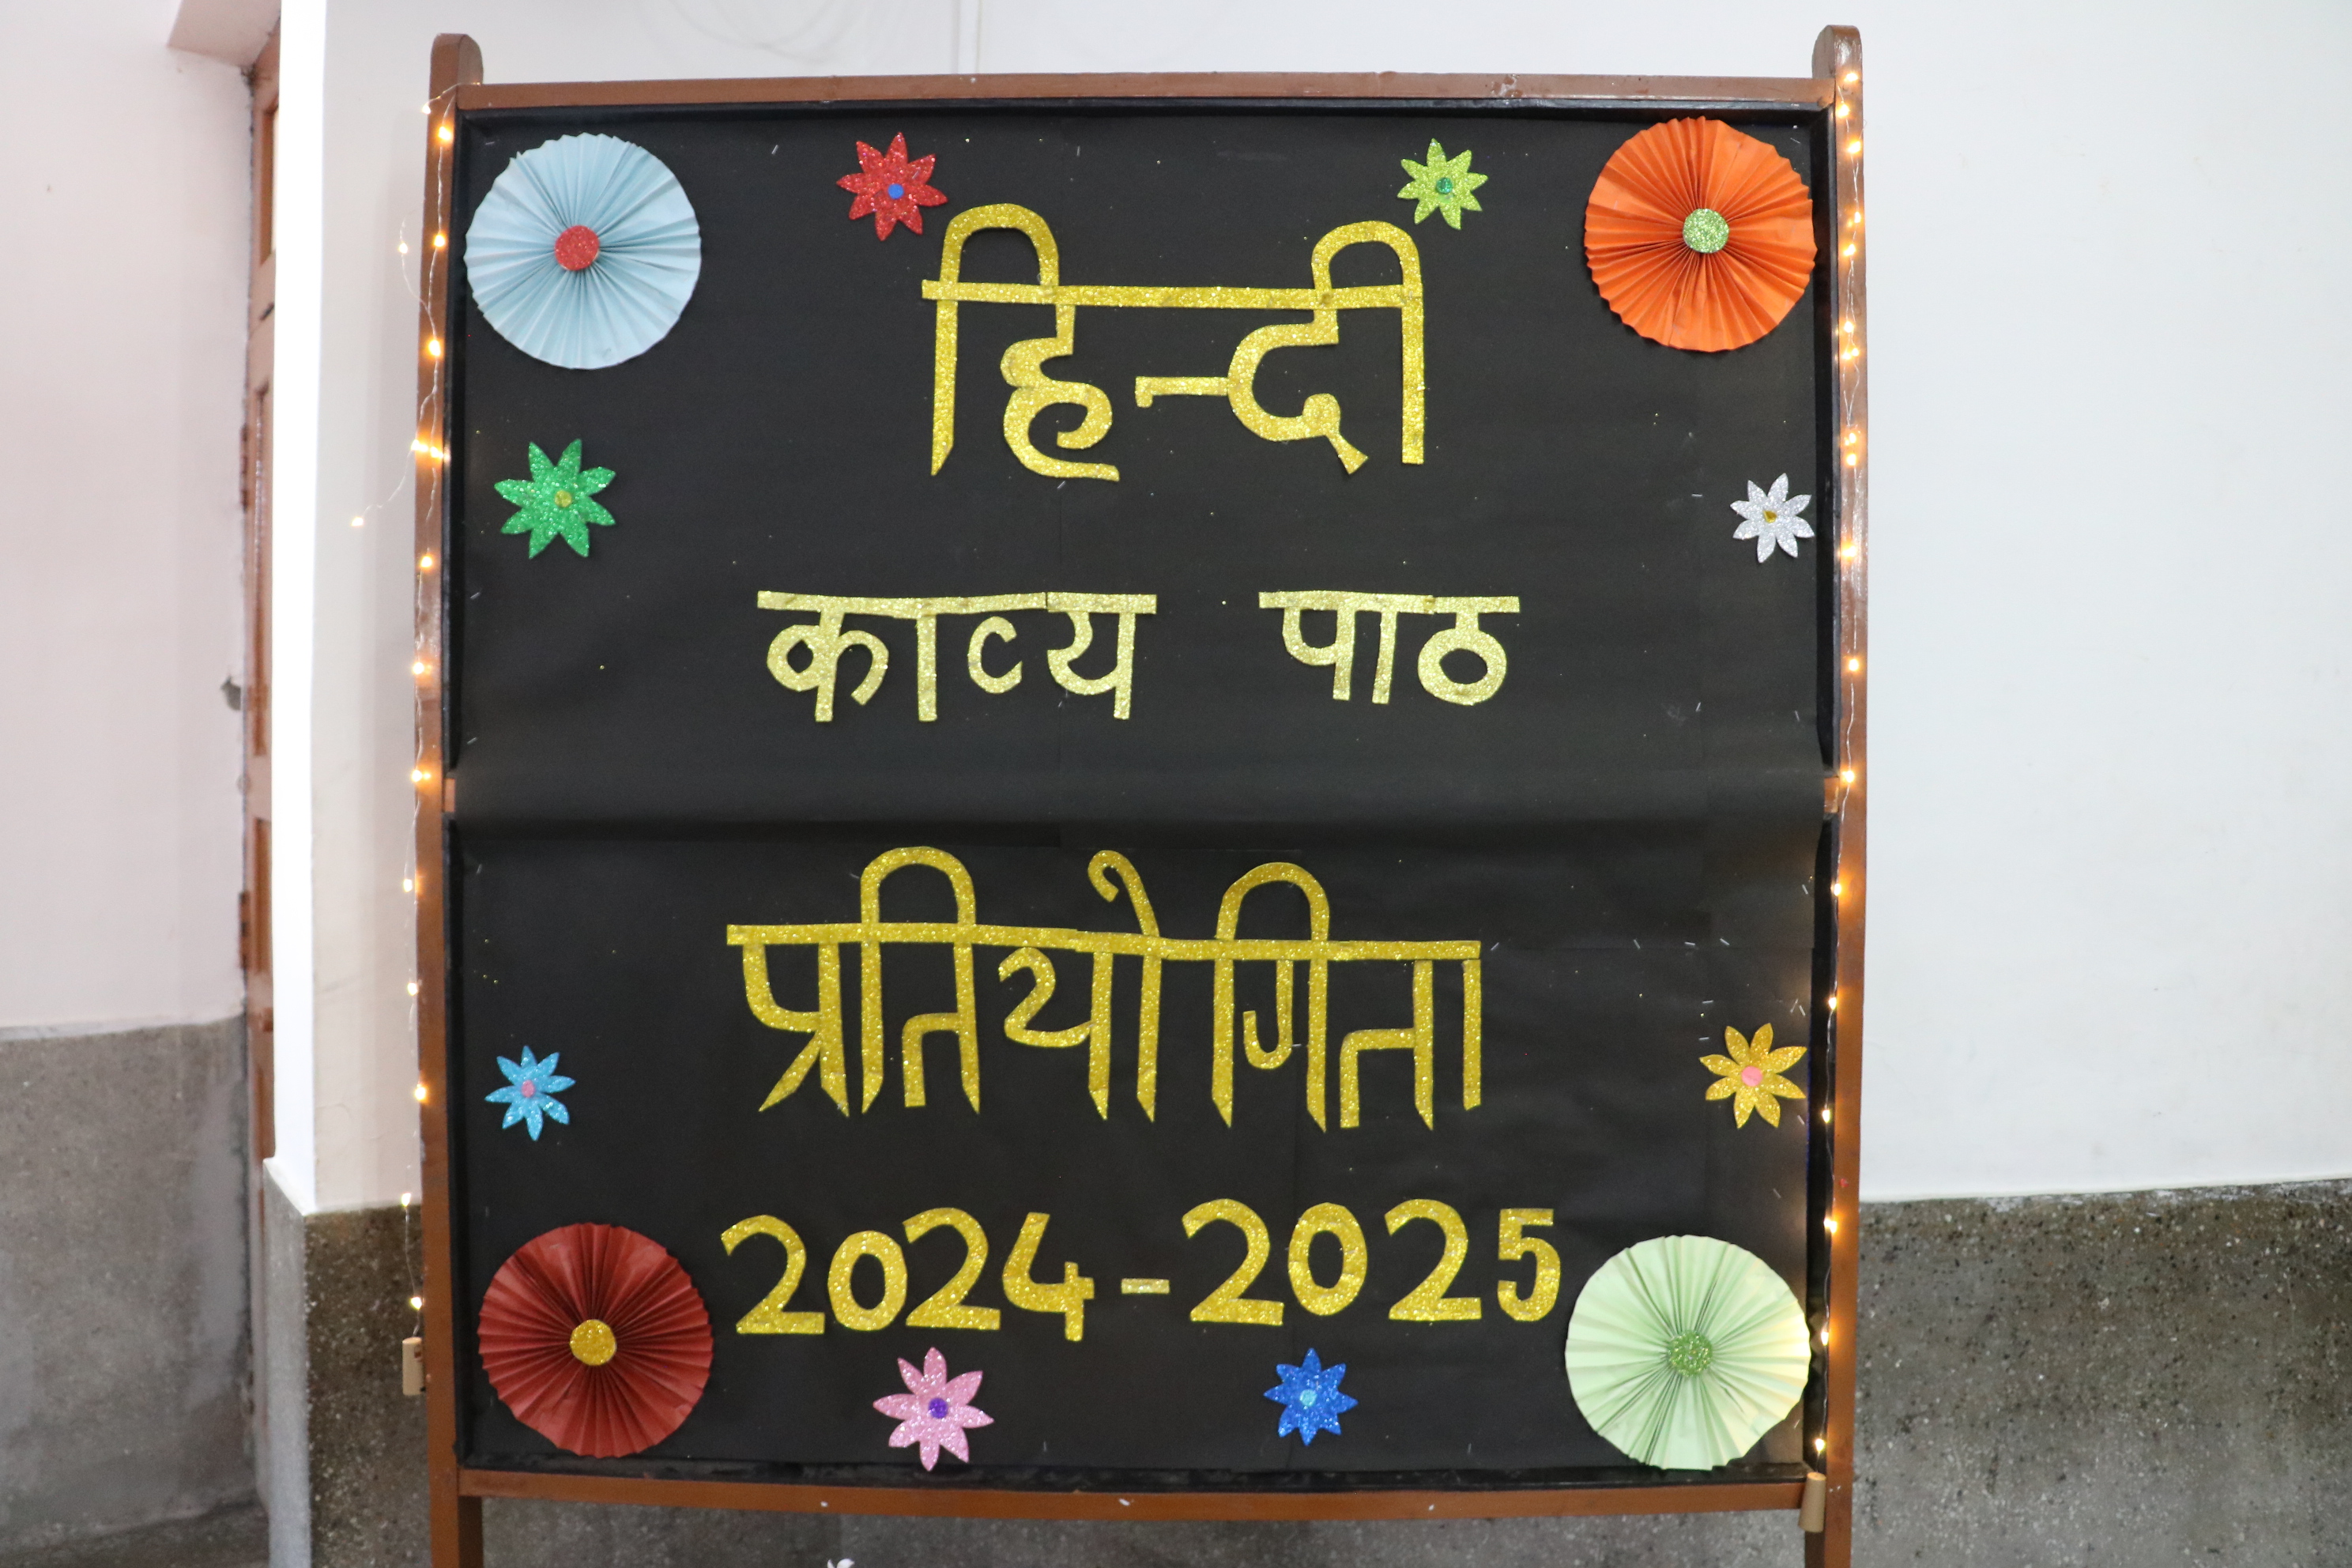 हिन्दी
काव्य पाठ
प्रतियोगिता
2024-2025